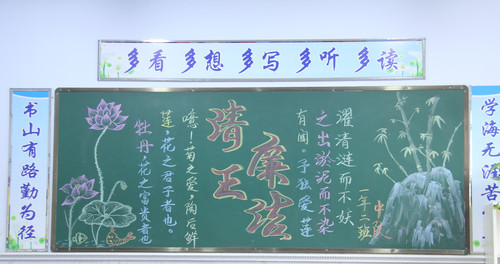 多看 多想 多写 多听 多读
书山有路勤为径
学海无涯苦
清正
廉洁
濯清涟而不妖
之出淤泥而不染
有闻。予独爱莲
噫！菊之爱，陶后鲜
莲，花之君子者也。
牡丹，花之富贵者也
一年二班
中队